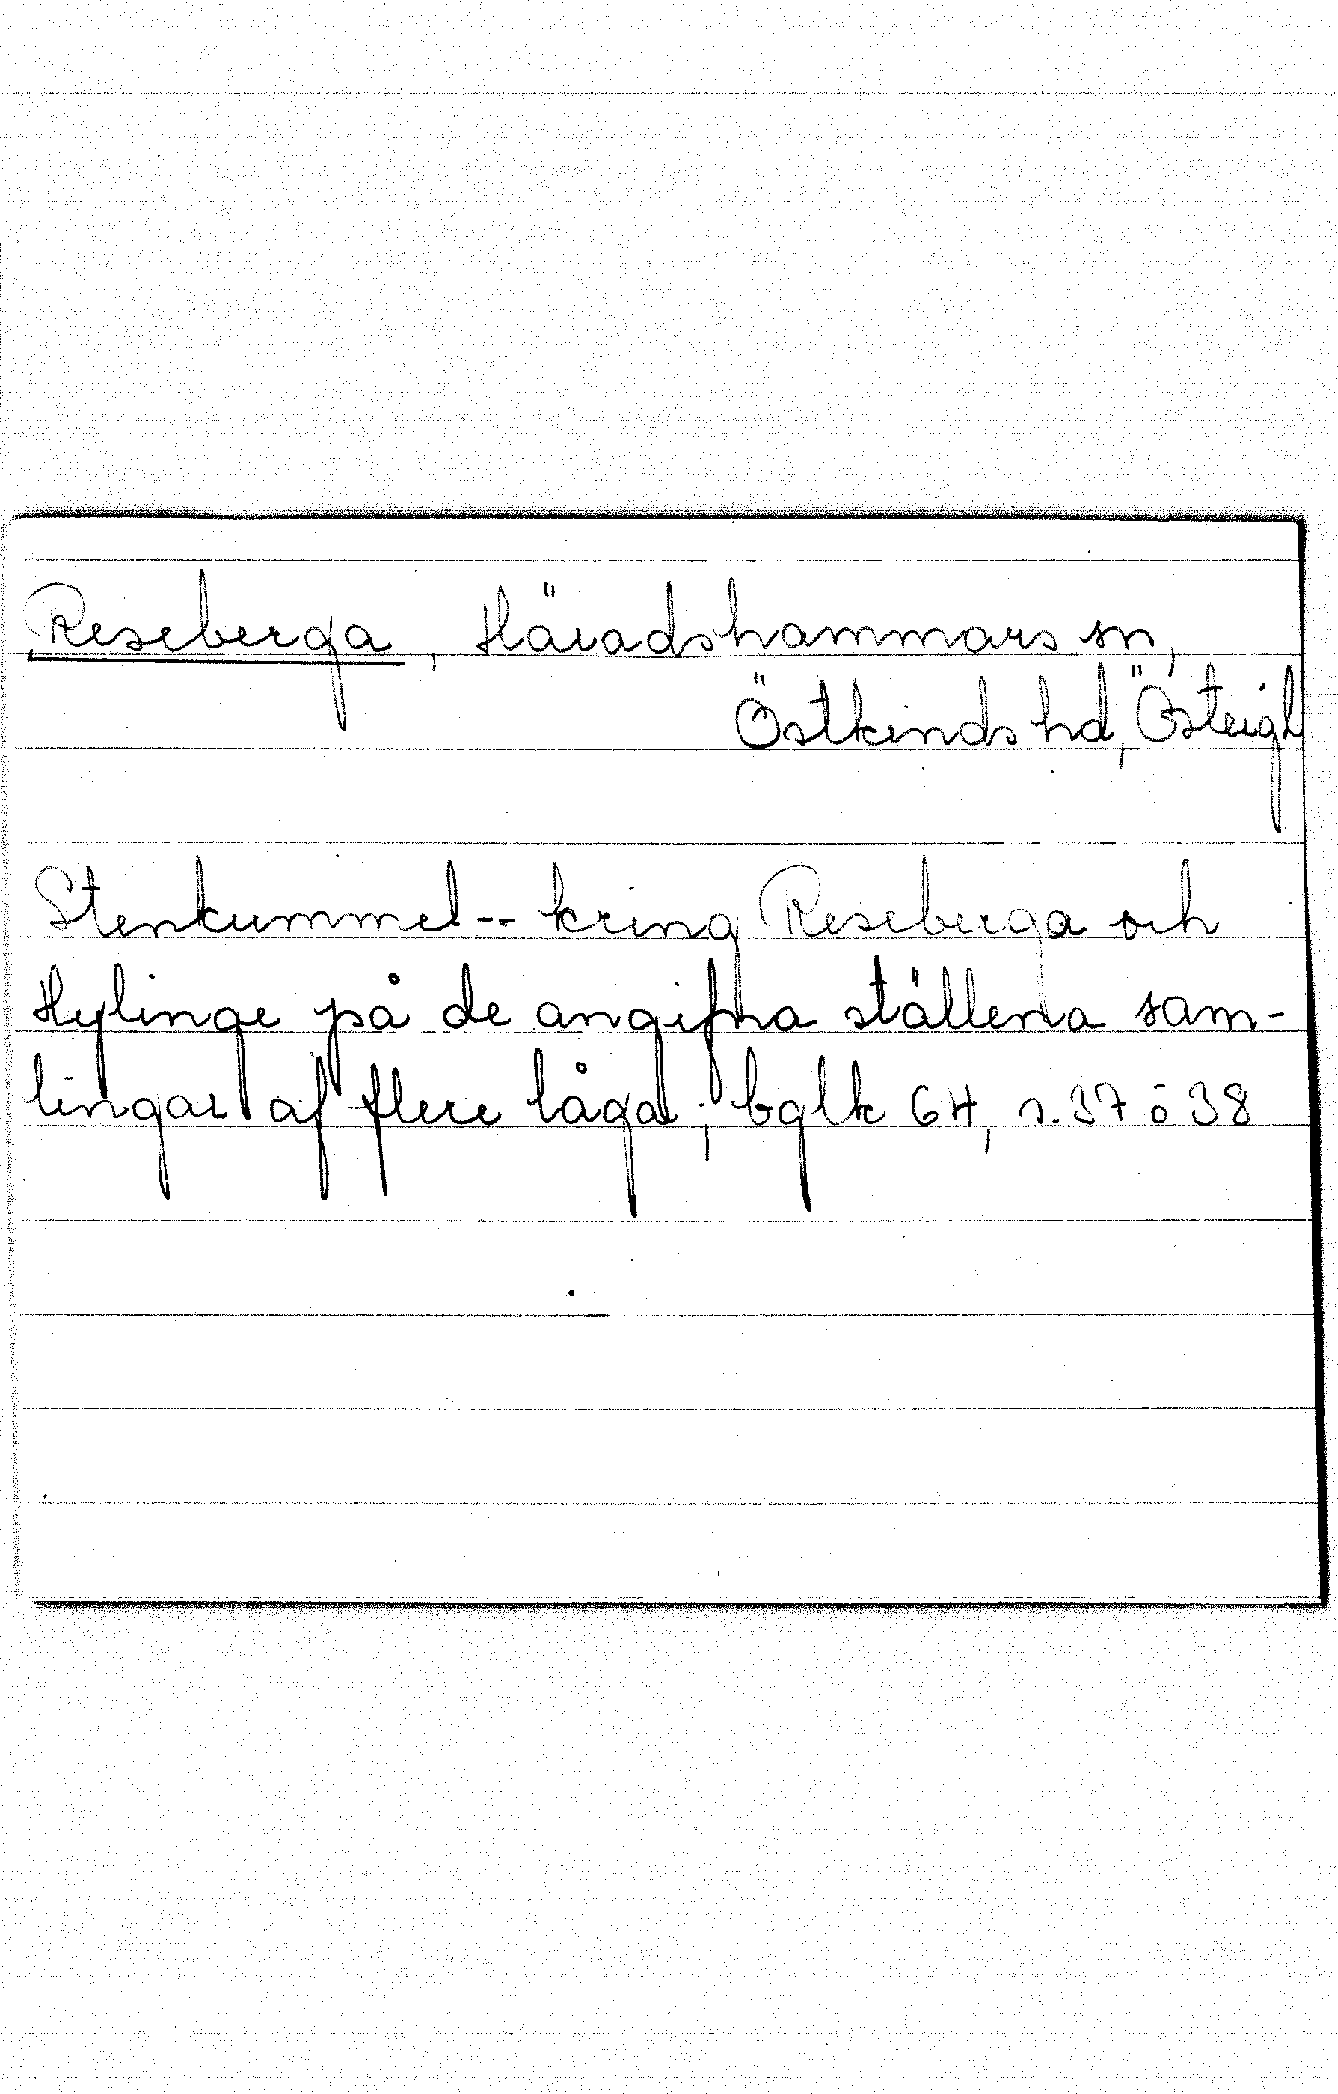 Reseberga, Häradshammars sn,
Östkinds hd, Östergl
Stenkummel -- kring Reseberga och
Hylinge på de angifna ställena sam-
lingar af flere låga; bglk 64, s. 37 o 38